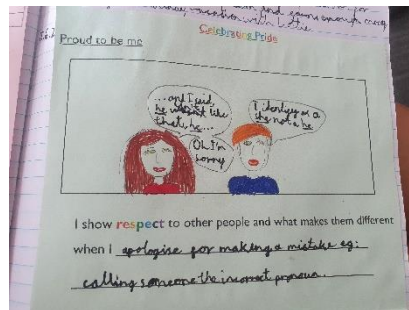 Celebrating Pride
Proud to be me
...and I said,
he wasn't like
that, he...
Oh I'm
sorry
I identify as a
she not a he
I show respect to other people and what makes them different
when I apologise for making a mistake eg:
calling someone the incorrect pronoun.